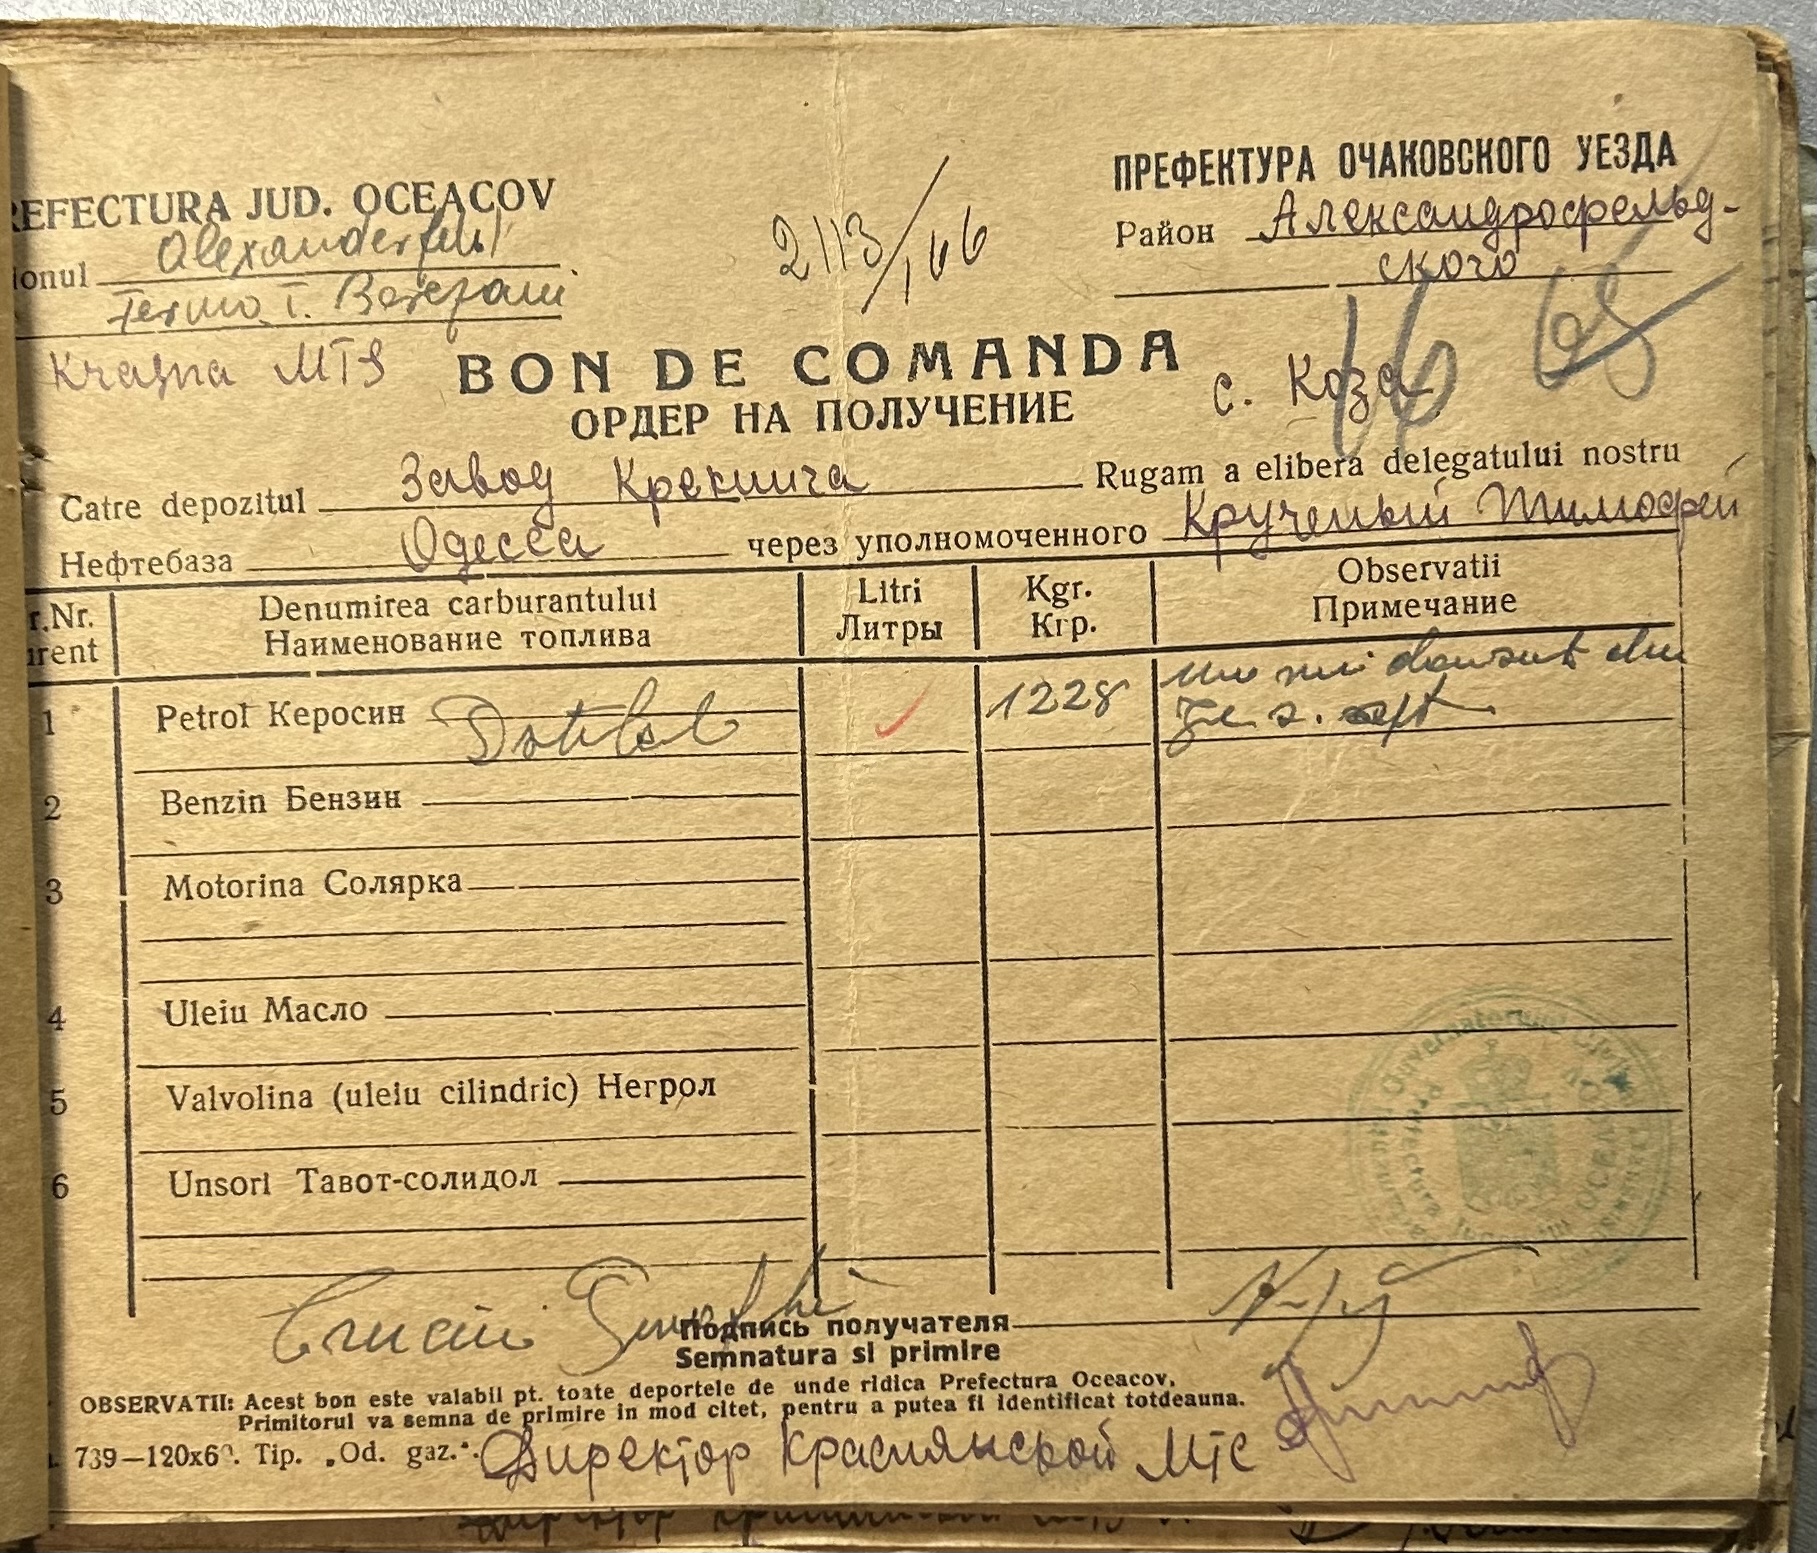 REFECTURA JUD. OCEACOV
ionul Alexanderfeld
Ferma T. Berezani
Krasna MTS
2113/
ПРЕФЕКТУРА ОЧАКОВСКОГО УЕЗДА
Район Александрофельд-
ского
16 65
BON DE COMANDA
ОРДЕР НА ПОЛУЧЕНИЕ
с. Коза
Catre depozitul Завод Крекинга Rugam a elibera delegatului nostru
Нефтебаза Одесса через уполномоченного Крученый Тимофей
r.Nr. Denumirea carburantului Litri Kgr. Observatii
urent Наименование топлива Литры Кгр. Примечание
1 Petrol Керосин 1228
2 Benzin Бензин
3 Motorina Солярка
4 Uleiu Масло
5 Valvolina (uleiu cilindric) Негрол
6 Unsori Тавот-солидол
Guvernatorul
Prefectura OCEACOV
Подпись получателя
Semnatura si primire
OBSERVATII: Acest bon este valabil pt. toate deportele de unde ridica Prefectura Oceacov.
Primitorul va semna de primire in mod citet, pentru a putea fi identificat totdeauna.
739—120x6°. Tip. „Od. gaz.".
Директор Краснянской МТС